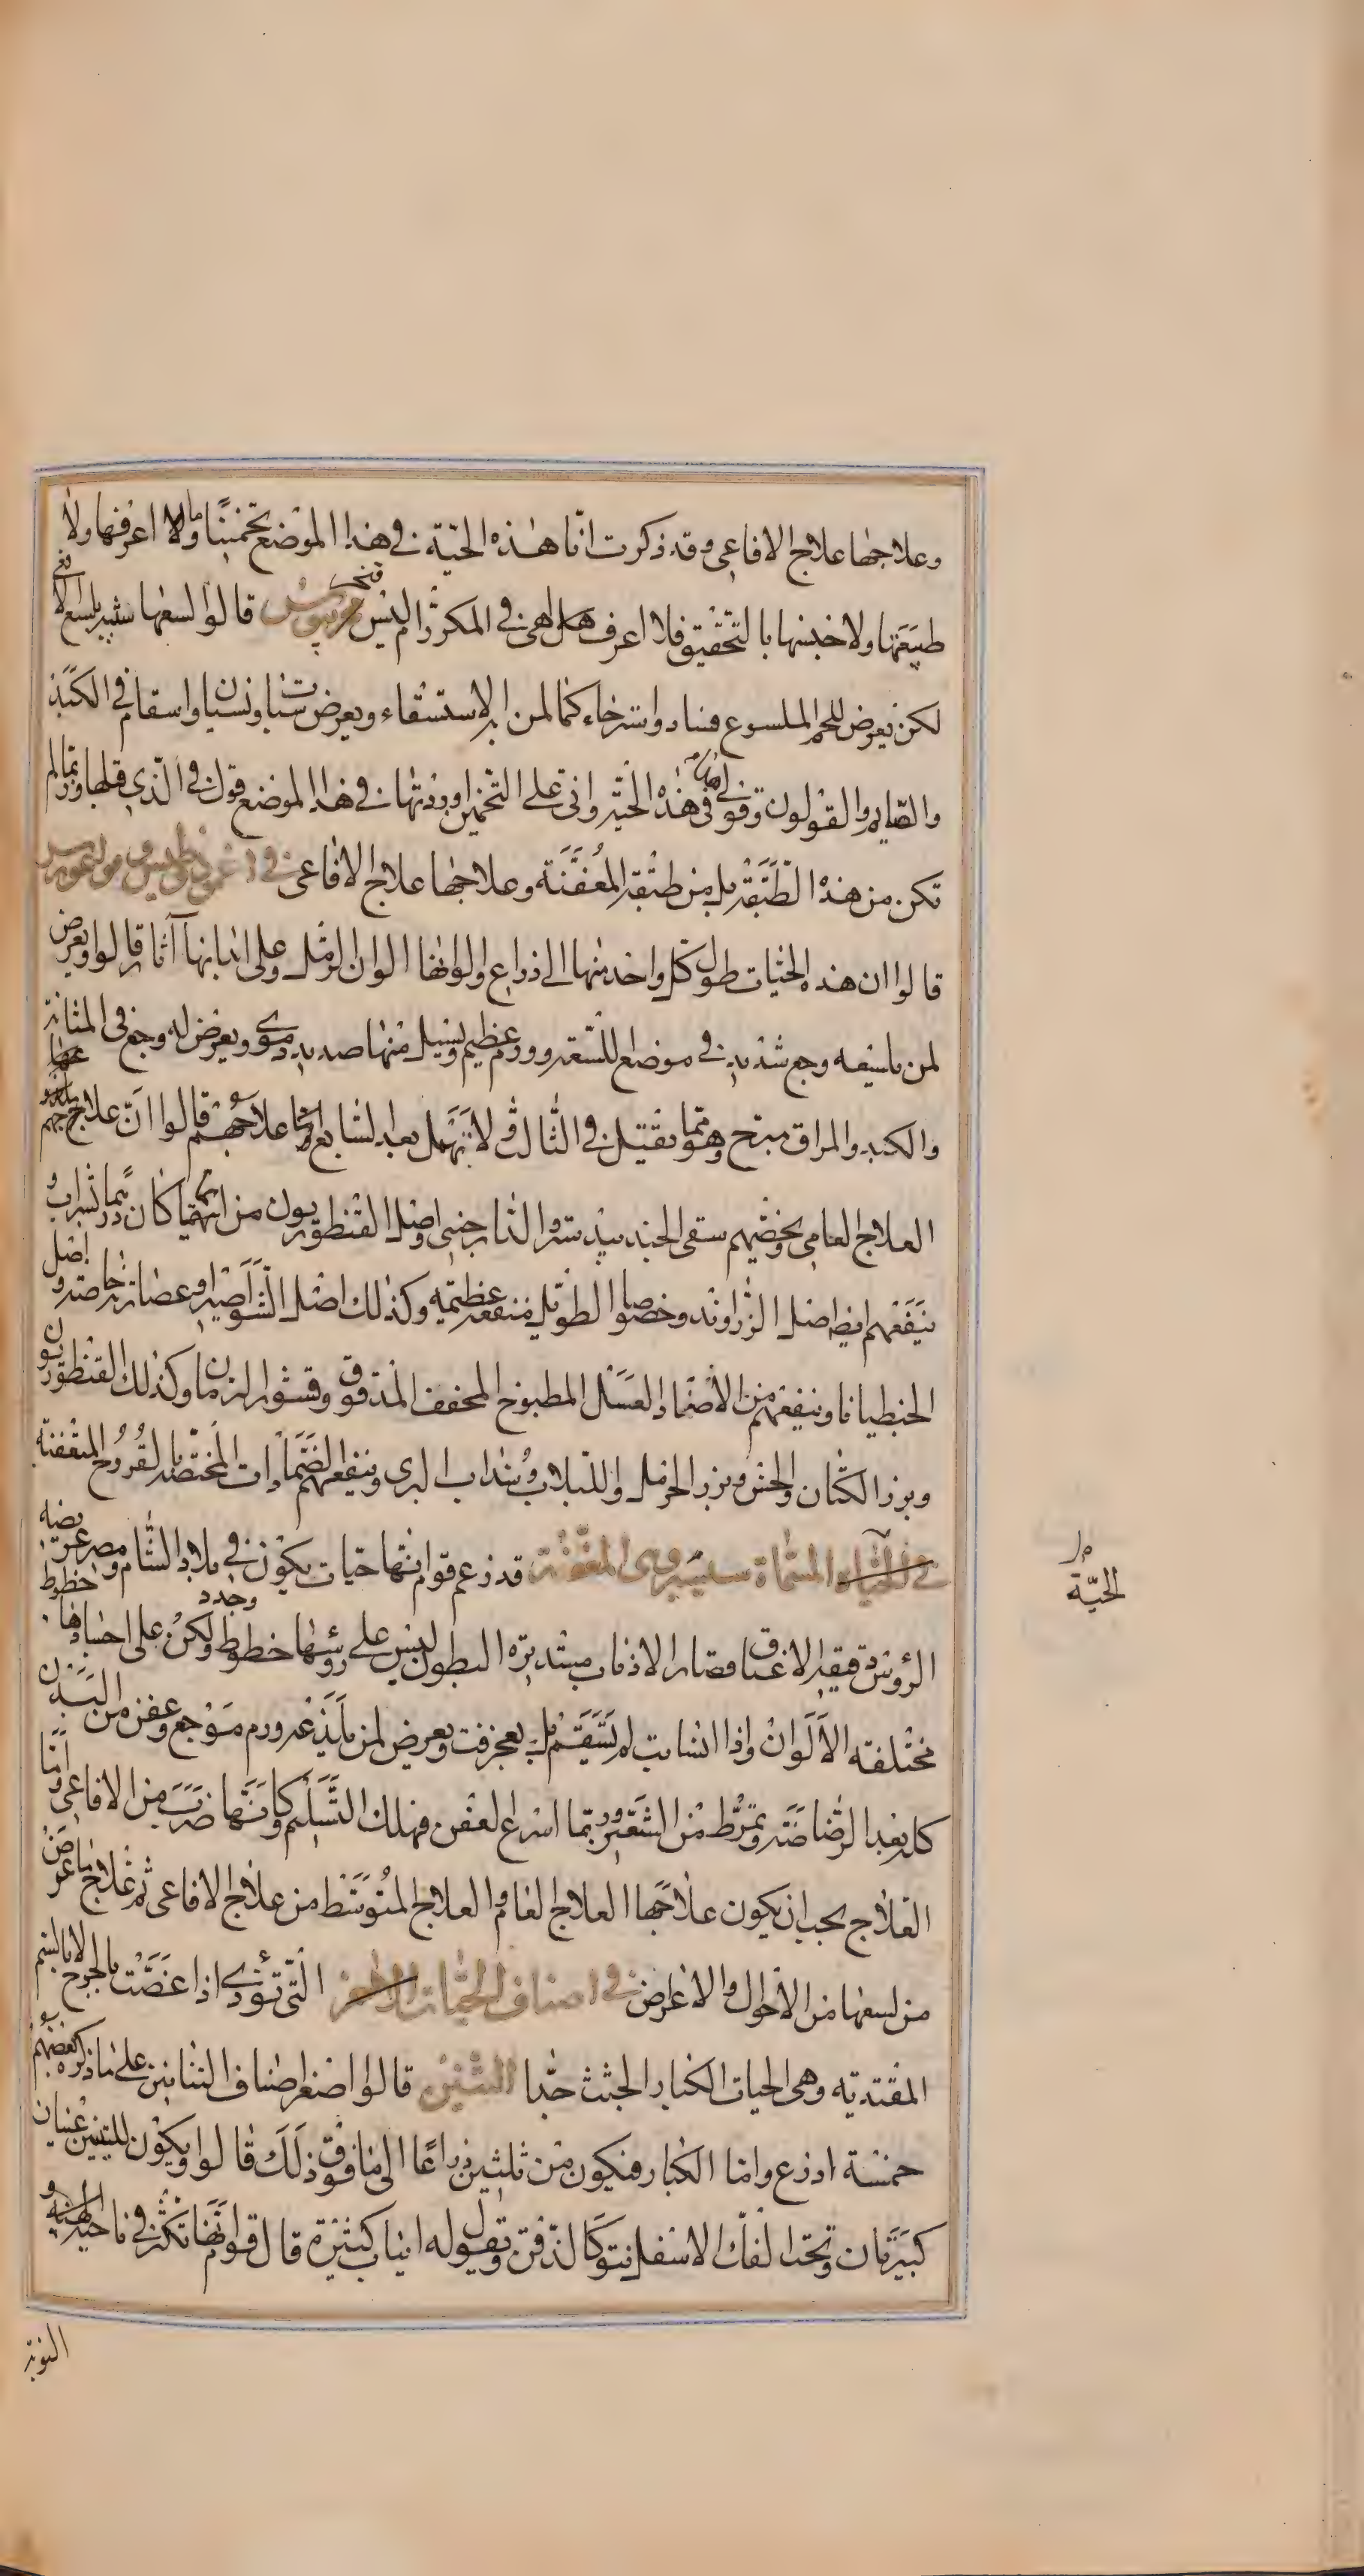 وعلاجها علاج الافاعى وقد ذكرت انا هذه الحية فى هذا الموضع تخمينا وما لا اعرفها ولا
طبيعتها ولا خبثها بالتحقيق فلا اعرف هل هى فى المكرر ام ليس قالوا لسعها شبيه بلسع الافعى
لكن يعرض للحم الملسوع فساد واسترخاء كما لمن به الاستسقاء ويعرض سبات ونسيان واسقام فى الكبد
والصايم والقولون وقولى فى هذه الحية وانى على التخمين اوردتها فى هذا الموضع قولى فى الذى قبلها وربما لم
تكن من هذه الطبقة بل من طبقة المعفنة وعلاجها علاج الافاعى فى
قالوا ان هذه الحيات طول كل واحد منها الى ذراع والوانها الوان الرمل وعلى ابدانها آثار قالوا ويعرض
لمن تلسعه وجع شديد فى موضع اللسعة وورم عظيم ويسيل منها صديد دموى ويعرض له وجع فى المثانة
والكبد والمراق مبرح وهو مما يقتل فى الثالث ولا تمهل بعد السابع علاجهم قالوا ان علاجهم
العلاج العامى ويخصهم سقى الجندبيدستر والدارجينى واصل القنطوريون من ايهما كان درهما بشراب و
ينفعهم ايضا اصل الزراوند وخصوصا الطويل منفعة عظيمة وكذلك اصل الشواصيرا وعصارته خاصة واصل
الجنطيانا وينفعهم من الاضماد العسل المطبوخ المجفف المدقوق وقشور الرمان وكذلك القنطوريون
وبزر الكتان والخس وبزر الحرمل واللبلاب وسذاب البرى وينفعهم الضمادات المختصة بالقروح المتعفنة
فى الحيات المسماة المعفنة قد زعم قوم انها حيات يكون فى بلاد الشام ومصر عريضة
الرؤس دقيقة الاعناق قصار الاذناب مستديرة البطون ليس على رؤسها خطوط وجدد ولكن على اجسادها خطوط
مختلفة الالوان واذا انسابت لم تستقم بل تعجرفت ويعرض لمن تلدغه ورم موجع وعفن من البدن
كله بعد الرضاضة وتمرط من الشعر وربما اسرع العفن فهلك السليم وكانها ضرب من الافاعى واما
العلاج يجب ان يكون علاجها العلاج العام والعلاج المتوسط من علاج الافاعى ثم علاج ما عرض
من لسعها من الاحوال والاعراض فى اصناف الحيات التى تؤذى اذا عضت بالجرح لا بالسم
المعتدية وهى الحيات الكبار الجثث جدا التنين قالوا اصغر اصناف التنانين على ما ذكره بعضهم
خمسة اذرع واما الكبار فيكون من ثلثين ذراعا الى ما فوق ذلك قالوا ويكون للتنين عينان
كبيرتان وتحت الفك الاسفل نتو كالذقن ويقول له انياب كثيرة قال قوم انها تكثر فى ناحية الهند و
النوبة
الحية